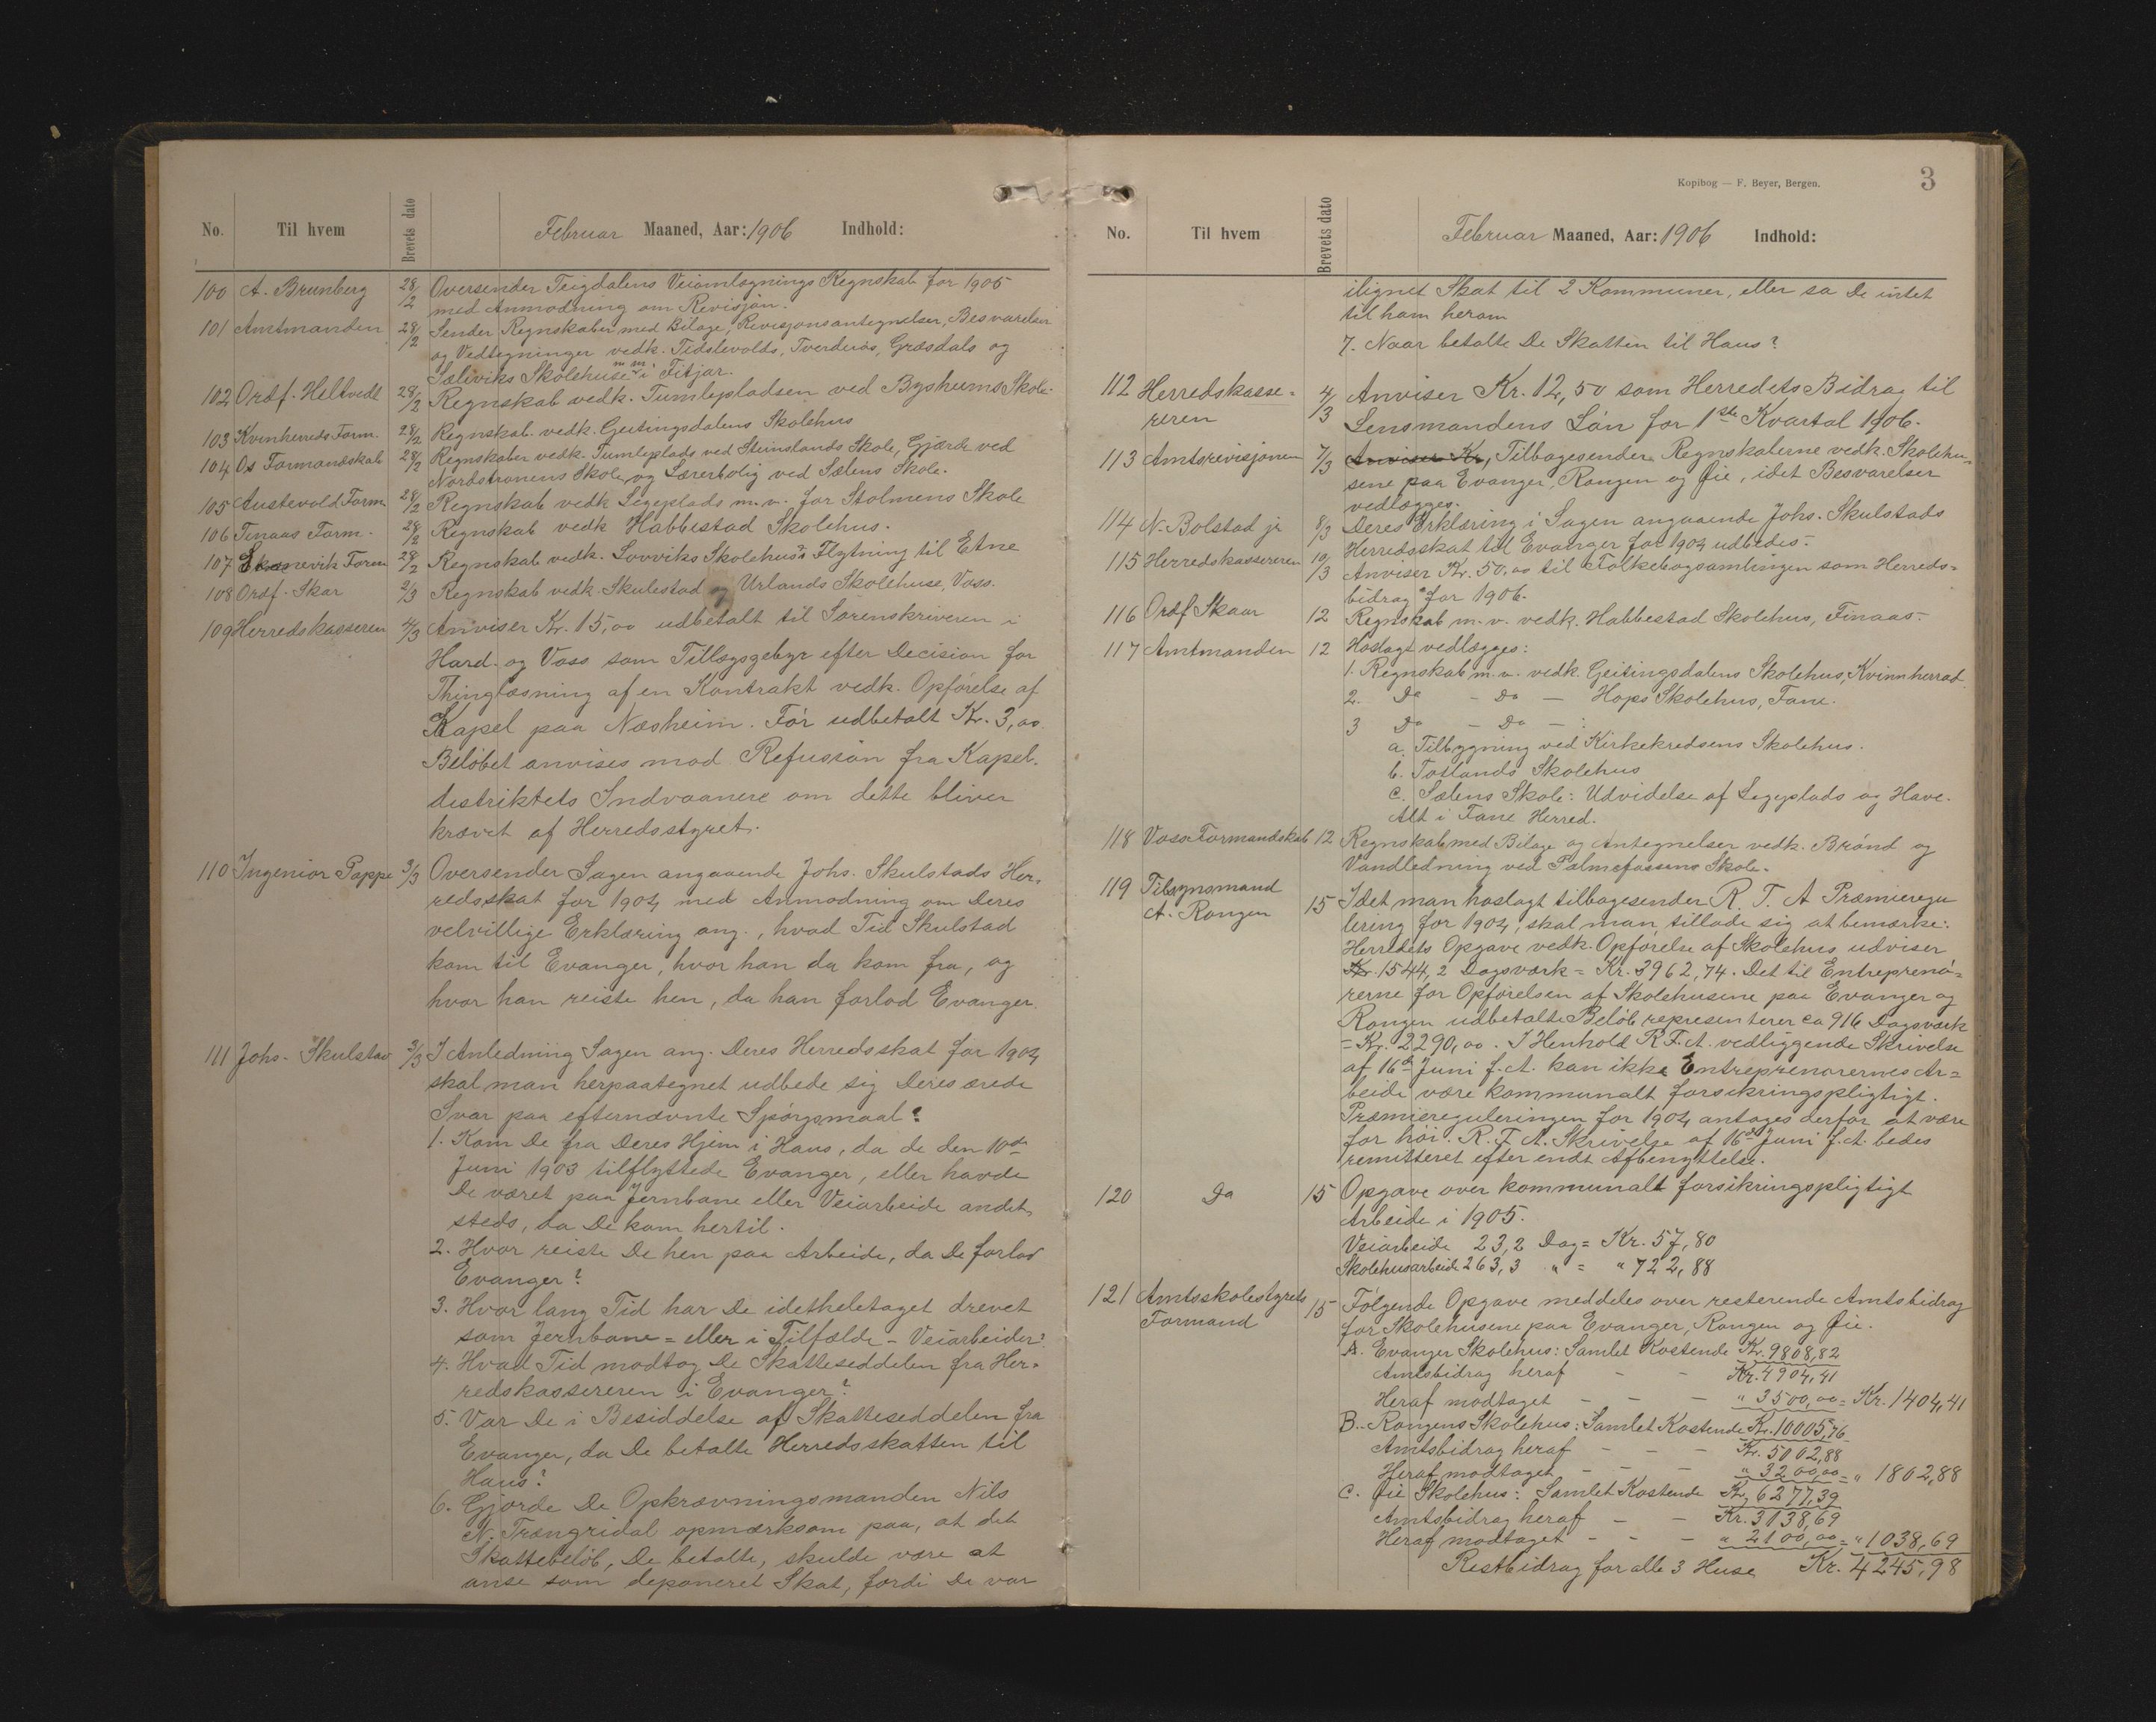 No. Til hvem Brevets dato Februar Maaned, Aar: 1906 Indhold:
100 A. Brunberg 28/2 Oversender Teigdalens Veiomlægnings Regnskab for 1905
med Anmodning om Revisjon.
101 Amtmanden 28/2 Sender Regnskaber med Bilage, Revisjonsantegnelser, Besvarelser
og Vedtegninger vedk. Tidslevolds, Tverderås, Græsdals og
Sælviks Skolehuse m m i Fitjar.
102 Ordf. Heltvedt 28/2 Regnskab vedk. Tumlepladsen ved Bysheims Skole.
103 Kvinherreds Form. 28/2 Regnskab. vedk. Geitingsdalens Skolehus
104 Os Formandskab 28/2 Regnskaber vedk. Tumleplads ved Steinslands Skole, Gjærde ved
Nordstrønens Skole, og Lærerbolig ved Sælens Skole.
105 Austevold Form. 28/2 Regnskab vedk Legeplads m.v. for Stolmens Skole
106 Finaas Form. 28/2 Regnskab vedk Habbestad Skolehus.
107 Skanevik Form 28/2 Regnskab vedk. Lovviks Skolehus's Flytning til Etne
108 Ordf. Skar 2/3 Regnskab vedk. Skulestad og Urlands Skolehuse, Voss.
109 Herredskasseren 4/3 Anviser Kr. 15,00 udbetalt til Sorenskriveren i
Hard. og Voss som Tillægsgebyr efter Decision for
Thinglæsning af en Kontrakt vedk. Opførelse af
Kapel paa Næsheim. Før udbetalt Kr. 3,00.
Beløbet anvises mod Refusion fra Kapel-
distriktets Indvaanere om dette bliver
krævet af Herredsstyret.
110 Ingeniør Pappe 3/3 Oversender Sagen angaaende Johs. Skulstads Her-
redsskat for 1904 med Anmodning om Deres
velvillige Erklæring ang., hvad Tid Skulstad
kom til Evanger, hvor han da kom fra, og
hvor han reiste hen, da han forlod Evanger.
111 Johs. Skulstad 3/3 I Anledning Sagen ang. Deres Herredsskat for 1904
skal man herpaategnet udbede sig Deres ærede
Svar paa efternævnte Spørgsmaal?
1. Kom De fra Deres Hjem i Haus, da de den 10de
Juni 1903 tilflyttede Evanger, eller havde
De været paa Jernbane eller Veiarbeide andet-
steds, da De kom hertil.
2. Hvor reiste De hen paa Arbeide, da De forlod
Evanger?
3. Hvor lang Tid har De idetheletaget drevet
som Jernbane= eller i Tilfælde - Veiarbeider?
4. Hvad Tid modtog De Skatteseddelen fra Her-
redskassereren i Evanger?
5. Var De i Besiddelse af Skatteseddelen fra
Evanger, da De betalte Herredsskatten til
Haus?
6. Gjorde De Opkrævningsmanden Nils
N. Trængridal opmærksom paa, at det
Skattebeløb, De betalte, skulde være at
anse som deponeret Skat, fordi De var
Kopibog — F. Beyer, Bergen. 3
No. Til hvem Brevets dato Februar Maaned, Aar: 1906 Indhold:
ilignet Skat til 2 Kommuner, eller sa De intet
til ham herom
7. Naar betalte De Skatten til Haus?
112 Herredskasse= 4/3 Anviser Kr. 12,50 som Herredets Bidrag til
reren Lensmandens Løn for 1ste Kvartal 1906.
113 Amtsrevisjonen 7/3 Anviser Kr, Tilbagesender Regnskaberne vedk. Skolehu-
sene paa Evanger, Rongen og Øie, idet Besvarelser
vedlægges.
114 N. Bolstad jr 8/3 Deres Erklæring i Sagen angaaende Johs. Skulstads
Herredsskat til Evanger for 1904 udbedes.
115 Herredskassereren 10/3 Anviser Kr. 50,00 til Folkebogsamlingen som Herreds=
bidrag for 1906.
116 Ordf Skaar 12 Regnskab m. v. vedk. Habbestad Skolehus, Finaas.
117 Amtmanden 12 Hoslagt vedlægges:
1. Regnskab m.v. vedk. Geitingsdalens Skolehus, Kvinnherrad
2. Do - Do — Hops Skolehus, Fane.
3 Do - Do — :
a. Tilbygning ved Kirkekredsens Skolehus.
b. Totlands Skolehus
c. Sælens Skole: Udvidelse af Legeplads og Have.
Alt i Fane Herred.
118 Voss Formandskab 12 Regnskab med Bilage og Antegnelser vedk. Brønd og
Vandledning ved Palmefossens Skole.
119 Tilsynsmand
A. Rongen 15 Idet man hoslagt tilbagesender R. F. A Præmieregu
lering for 1904, skal man tillade sig at bemærke:
Herredets Opgave vedk. Opførelse af Skolehus udviser
Kr. 1544,2 Dagsværk = Kr. 3962,74. Det til Entreprenø=
rerne for Opførelsen af Skolehusene paa Evanger og
Rongen udbetalte Beløb representerer ca 916 Dagsværk
= Kr. 2290,00. I Henhold R.F.A. vedliggende Skrivelse
af 16de Juni f.A. kan ikke Entreprenørernes Ar=
beide være kommunalt forsikringspligtigt.
Præmiereguleringen for 1904 antages derfor at være
for høi. R. F. A. Skrivelse af 16de Juni f.A. bedes
remitteret efter endt Afbenyttelse.
120 Do 15 Opgave over kommunalt forsikringspligtigt
Arbeide i 1905.
Veiarbeide 23,2 Dag = Kr. 57,80
Skolehusarbeide 263,3 " = " 722,88
121 Amtsskolestyrets 15 Følgende Opgave meddeles over resterende Amtsbidrag
Formand for Skolehusene paa Evanger, Rongen og Øie.
A. Evanger Skolehus: Samlet Kostende Kr. 9808,82
Amtsbidrag heraf - - Kr. 4904,41
Heraf modtaget - - - " 3500,00 = Kr. 1404,41
B. Rongens Skolehus: Samlet Kostende Kr. 10005,76
Amtsbidrag heraf - - - Kr. 5002,88
Heraf modtaget - - - " 3200,00 = " 1802,88
C. Øie Skolehus: Samlet Kostende Kr. 6277,39
Amtsbidrag heraf - - Kr. 3138,69
Heraf modtaget - - - " 2100,00 = " 1038,69
Restbidrag for alle 3 Huse Kr. 4245,98